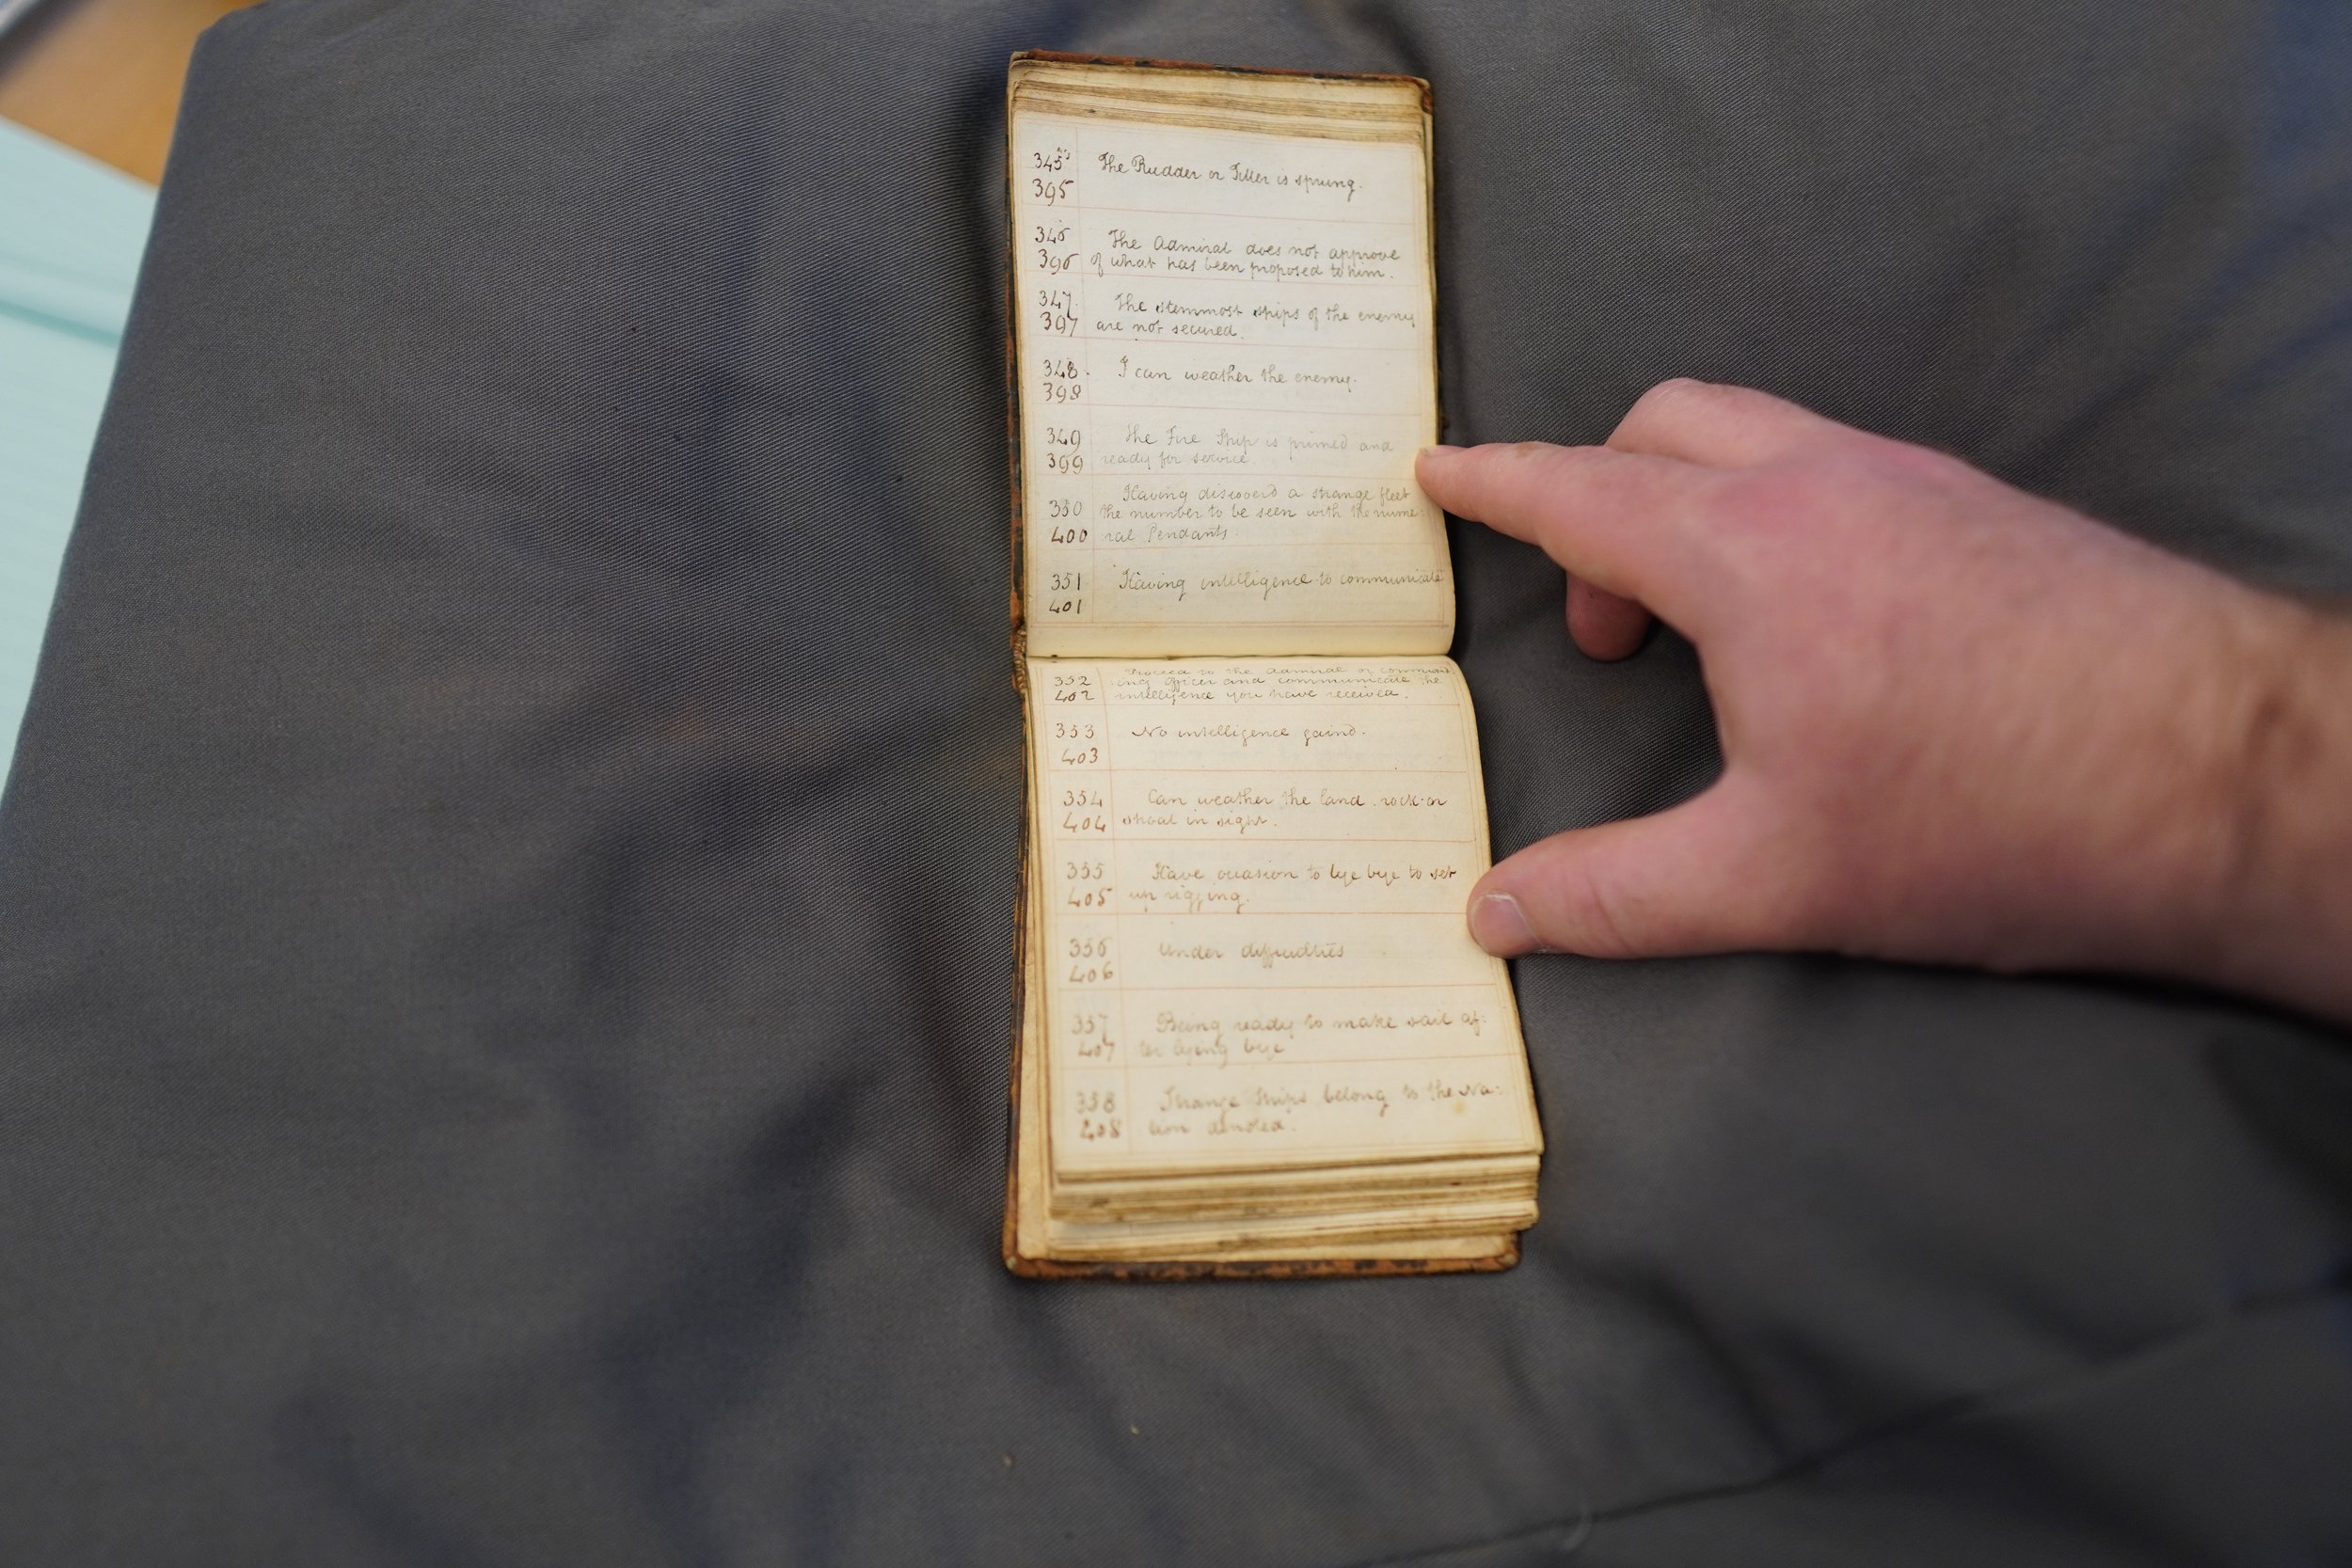 345
The Rudder or Tiller is sprung.
395
346
The Admiral does not approve
396
of what has been proposed to him.
347
The sternmost ships of the enemy
397
are not secured.
348
I can weather the enemy.
398
349
The Fire Ship is primed and
399
ready for service.
Having discoverd a strange fleet
350
the number to be seen with the nume-
400
ral Pendants.
351
Having intelligence to communicate
401
Proceed to the Admiral or command
352
ing officer and communicate the
402
intelligence you have received.
353
No intelligence gaind.
403
354
Can weather the land rock or
404
shoal in sight.
355
Have occasion to lye bye to set
405
up rigging.
356
Under difficulties
406
357
Being ready to make sail af-
407
ter lyeing bye
358
Strange Ships belong to the Na-
408
tion denoted.